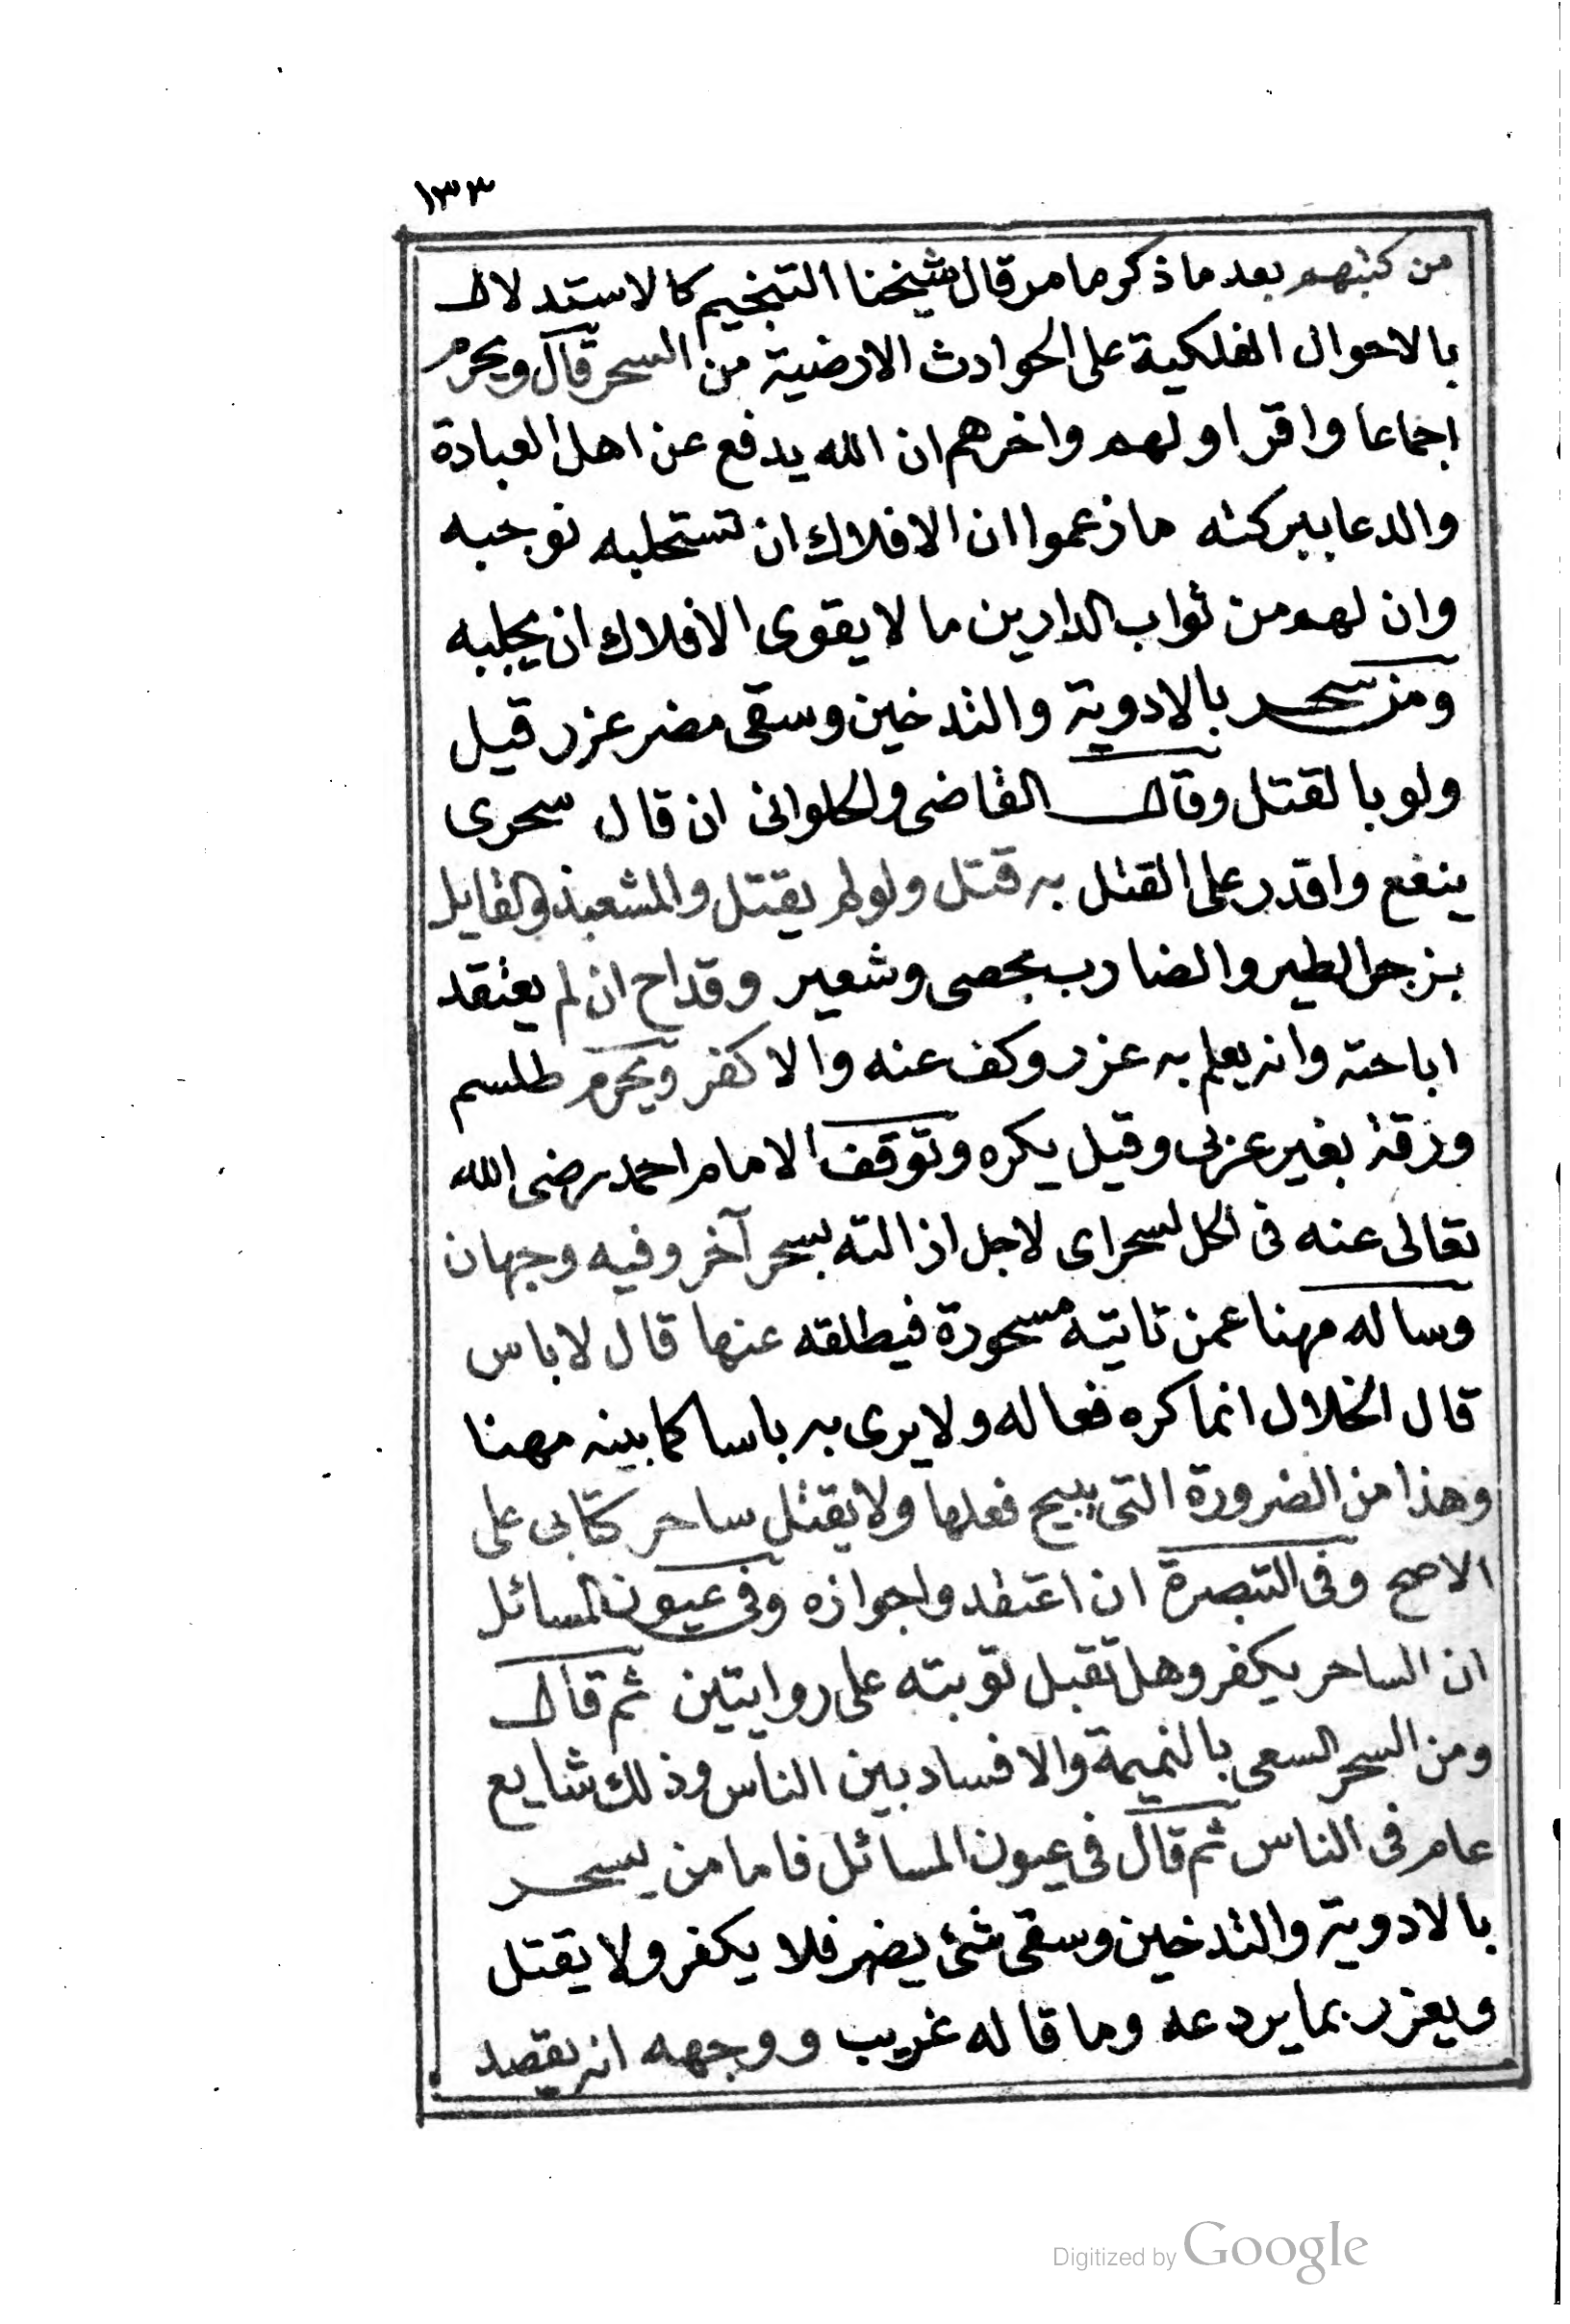 ١٣٣
من كتبهم بعد ما ذكر ما مر قال شيخنا التنجيم كالاستدلال
بالاحوال الفلكية على الحوادث الارضية من السحر قال ويحرم
اجماعا واقر اولهم واخرهم ان الله يدفع عن اهل العبادة
والدعا ببركته ما زعموا ان الافلاك ان تستحلبه توجبه
وان لهم من ثواب الدارين ما لا يقوى الافلاك ان يجلبه
ومن سحر بالادوية والتدخين وسقى مضر عزر قيل
ولو بالقتل وقال القاضى والحلوانى ان قال سحرى
ينفع واقدر على القتل به قتل ولو لم يقتل والمشعبذ والقايل
بزجر الطير والضارب بحصى وشعير وقداح ان لم يعتقد
اباحته وانه يعلم به عزر وكف عنه والا كفر ويحرم طلسم
ورقية بغير عربى وقيل يكره وتوقف الامام احمد رضى الله
تعالى عنه فى الحل لسحر اى لاجل ازالته بسحر آخر وفيه وجهان
وساله مهنا عمن تاتيه مسحورة فيطلقه عنها قال لا باس
قال الخلال انما كره فعاله ولا يرى به باسا كما بينه مهنا
وهذا من الضرورة التى يبيح فعلها ولا يقتل ساحر كتابى على
الاصح وفى التبصرة ان اعتقدوا جوازه وفى عيون المسائل
ان الساحر يكفر وهل تقبل توبته على روايتين ثم قال
ومن السحر السعى بالنميمة والافساد بين الناس وذلك شايع
عام فى الناس ثم قال فى عيون المسائل فاما من يسحر
بالادوية والتدخين وسقى شئ يضر فلا يكفر ولا يقتل
ويعزر بما يردعه وما قاله غريب ووجهه انه يقصد
Digitized by Google